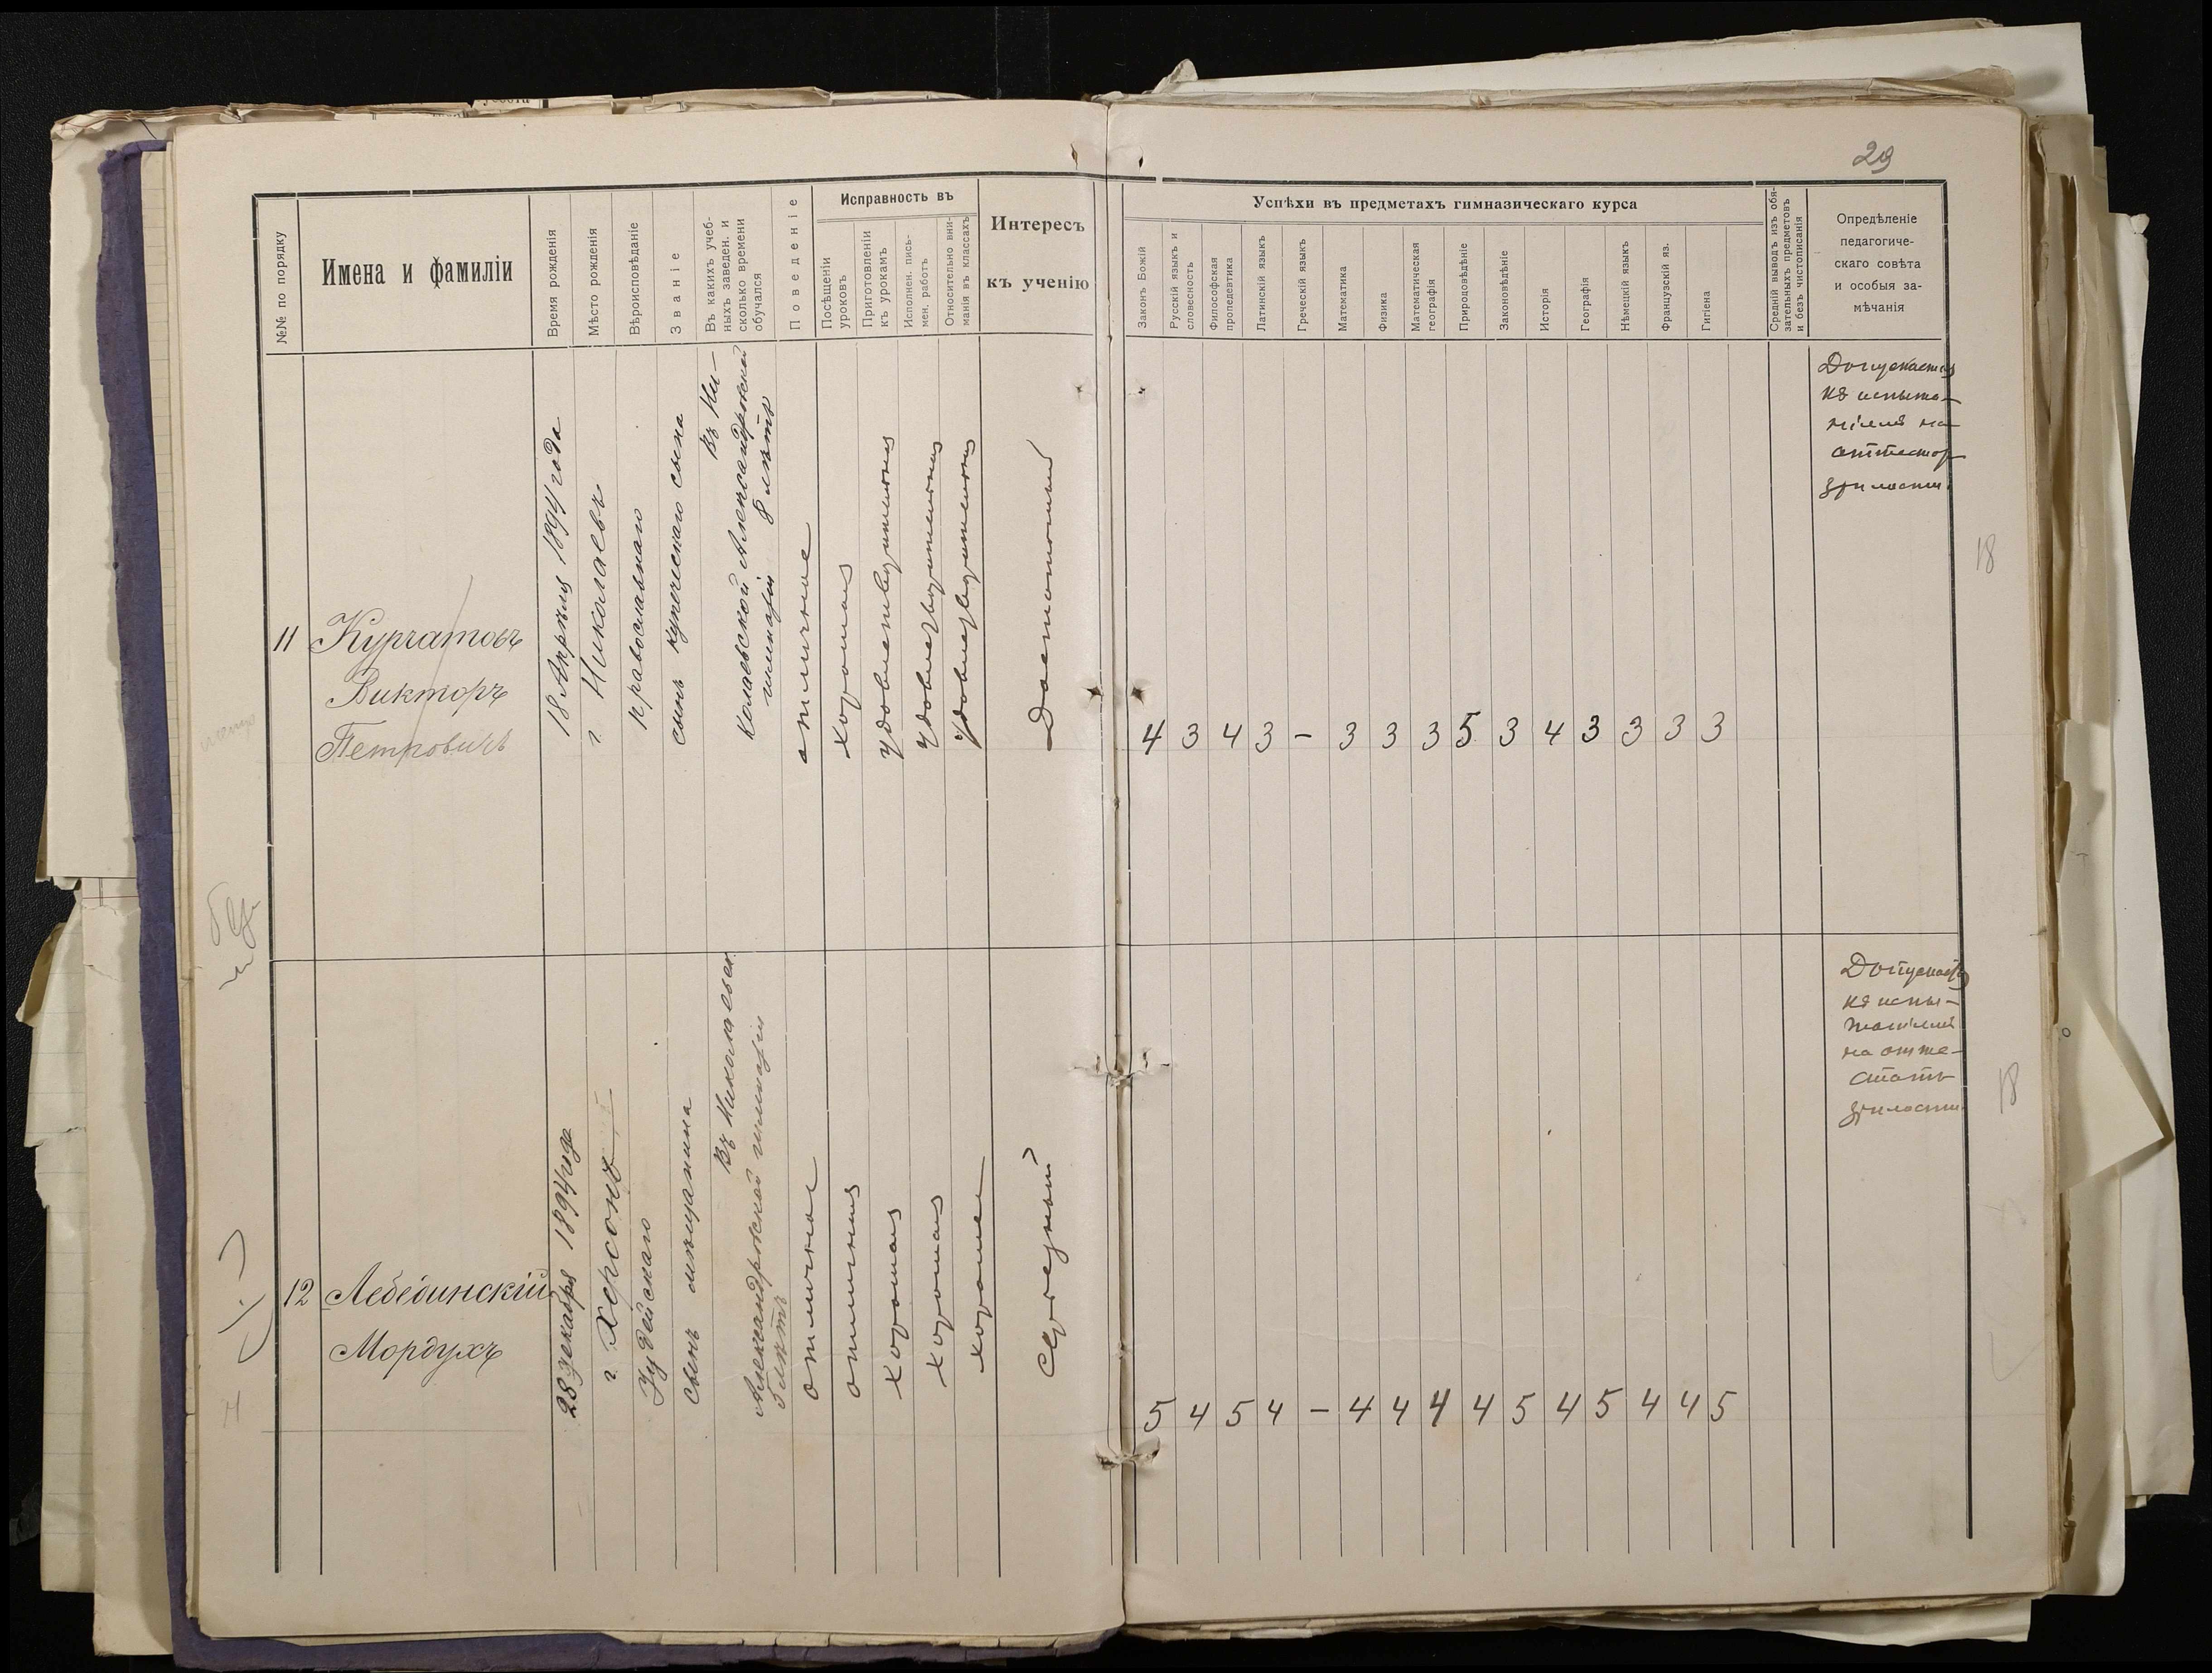 29
№№ по порядку
Имена и фамиліи
Время рожденія
Мѣсто рожденія
Вѣроисповѣданіе
Званіе
Въ какихъ учеб-
ныхъ заведен. и
сколько времени
обучался
Поведеніе
Исправность въ
Посѣщеніи
уроковъ
Приготовленіи
къ урокамъ
Исполнен. пись-
мен. работъ
Относительно вни-
манія въ классахъ
Интересъ
къ ученію
Успѣхи въ предметахъ гимназическаго курса
Законъ Божій
Русскій языкъ и
словесность
Философская
пропедевтика
Латинскій языкъ
Греческій языкъ
Математика
Физика
Математическая
географія
Природовѣдѣніе
Законовѣдѣніе
Исторія
Географія
Нѣмецкій языкъ
Французскій яз.
Гигіена
Средній выводъ изъ обя-
зательныхъ предметовъ
и безъ чистописанія
Опредѣленіе
педагогиче-
скаго совѣта
и особыя за-
мѣчанія
11
Курчатовъ
Викторъ
Петровичъ
18 Апрѣля 1894 года
г. Николаевъ
православнаго
сынъ купеческаго сына
Въ Ни-
колаевской Александровской
гимназіи 8 лѣтъ
отличное
хорошая
удовлетворительная
удовлетворительная
удовлетворительная
4 3 4 3 – 3 3 3 5 3 4 3 3 3 3
Допускается
къ испыта-
ніямъ на
аттестат
зрѣлости
18
12
Лебединскій
Мордухъ
28 декабря 1894 года
г. Херсонъ
Іудейскаго
сынъ мѣщанина
Въ Николаевск.
Александровской гимназіи
отличное
отличная
хорошая
хорошая
хорошее
5 4 5 4 – 4 4 4 4 5 4 5 4 4 5
Допускается
къ испы-
таніямъ
на атте-
статъ
зрѣлости
18